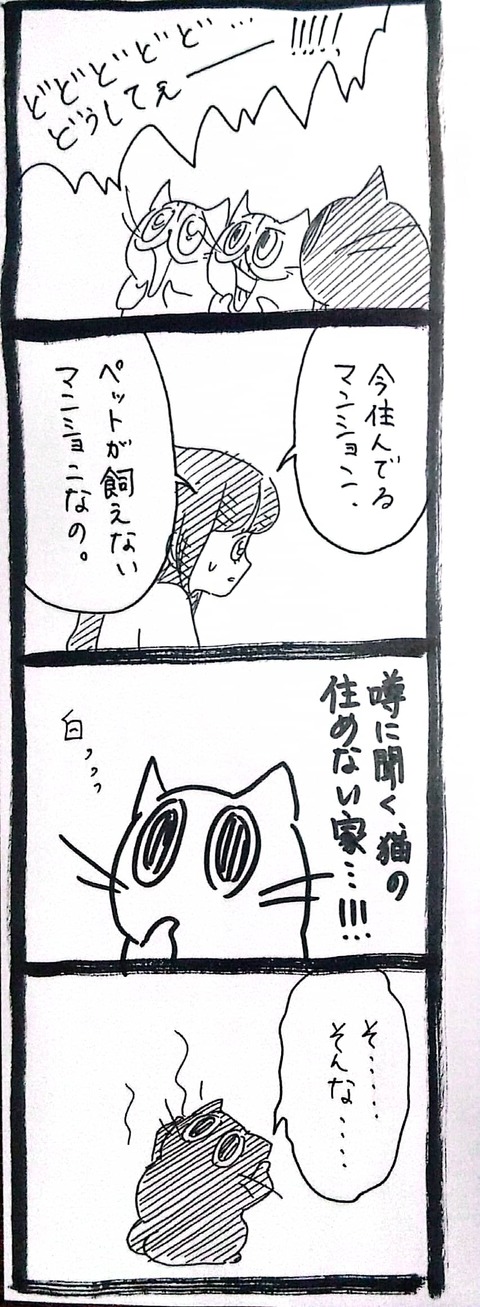 どどどどど…
どうしてぇ──!!!!!
今住んでる
マンション、
ペットが飼えない
マンションなの。
噂に聞く、猫の
住めない家…!!!
白ッッッ
そ……
そんな……